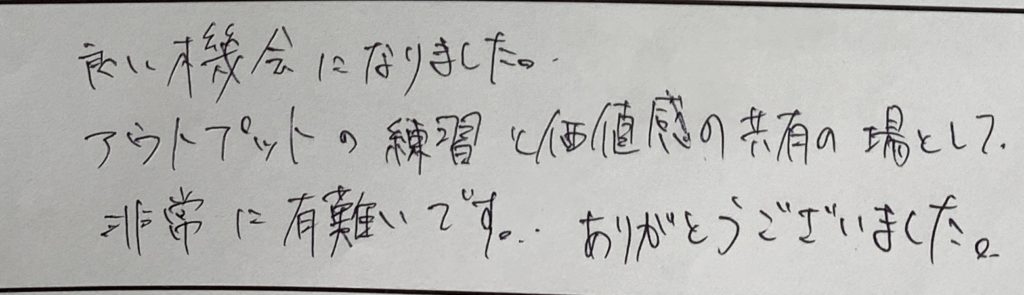 良い機会になりました。
アウトプットの練習と価値感の共有の場として、
非常に有難いです。 ありがとうございました。